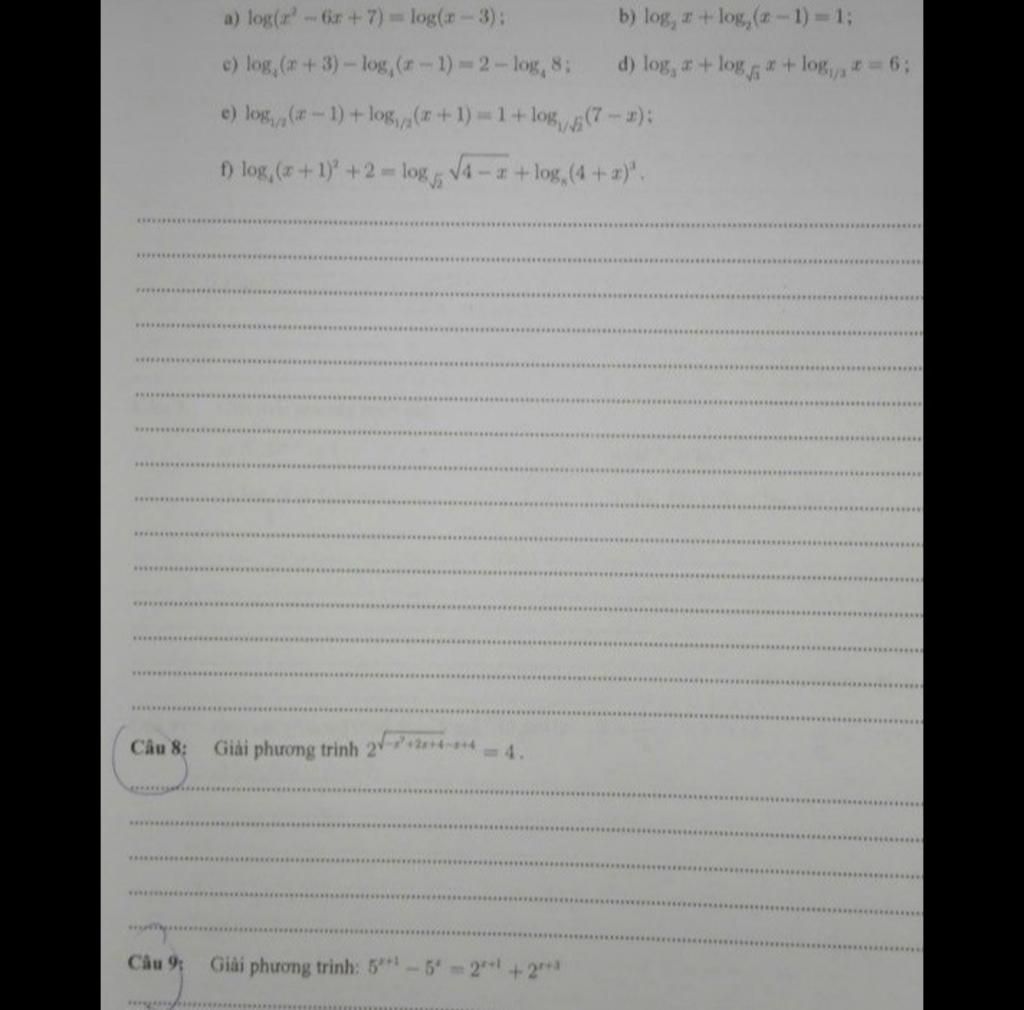 a) log(x² − 6x + 7) = log(x − 3);    b) log₂ x + log₂(x − 1) = 1;
c) log₄(x + 3) − log₄(x − 1) = 2 − log₄ 8;    d) log₃ x + log_√3 x + log_1/3 x = 6;
e) log_1/2(x − 1) + log_1/2(x + 1) = 1 + log_1/√2(7 − x);
f) log₄(x + 1)² + 2 = log_√2 √(4 − x) + log₈(4 + x)³.
Câu 8: Giải phương trình 2^(√(−x²+2x+4)−x+4) = 4.
Câu 9: Giải phương trình: 5^(x+1) − 5^x = 2^(x+1) + 2^(x+3)